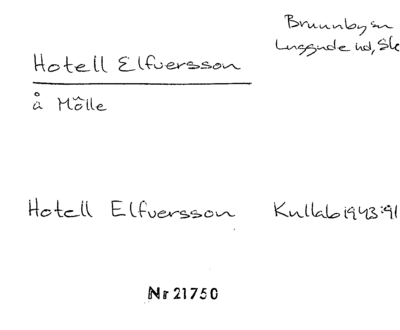 Brunnby sn
Luggude hd, Sk
Hotell Elfversson
å Mölle
Hotell Elfversson Kullab 1943:91
Nr 21750